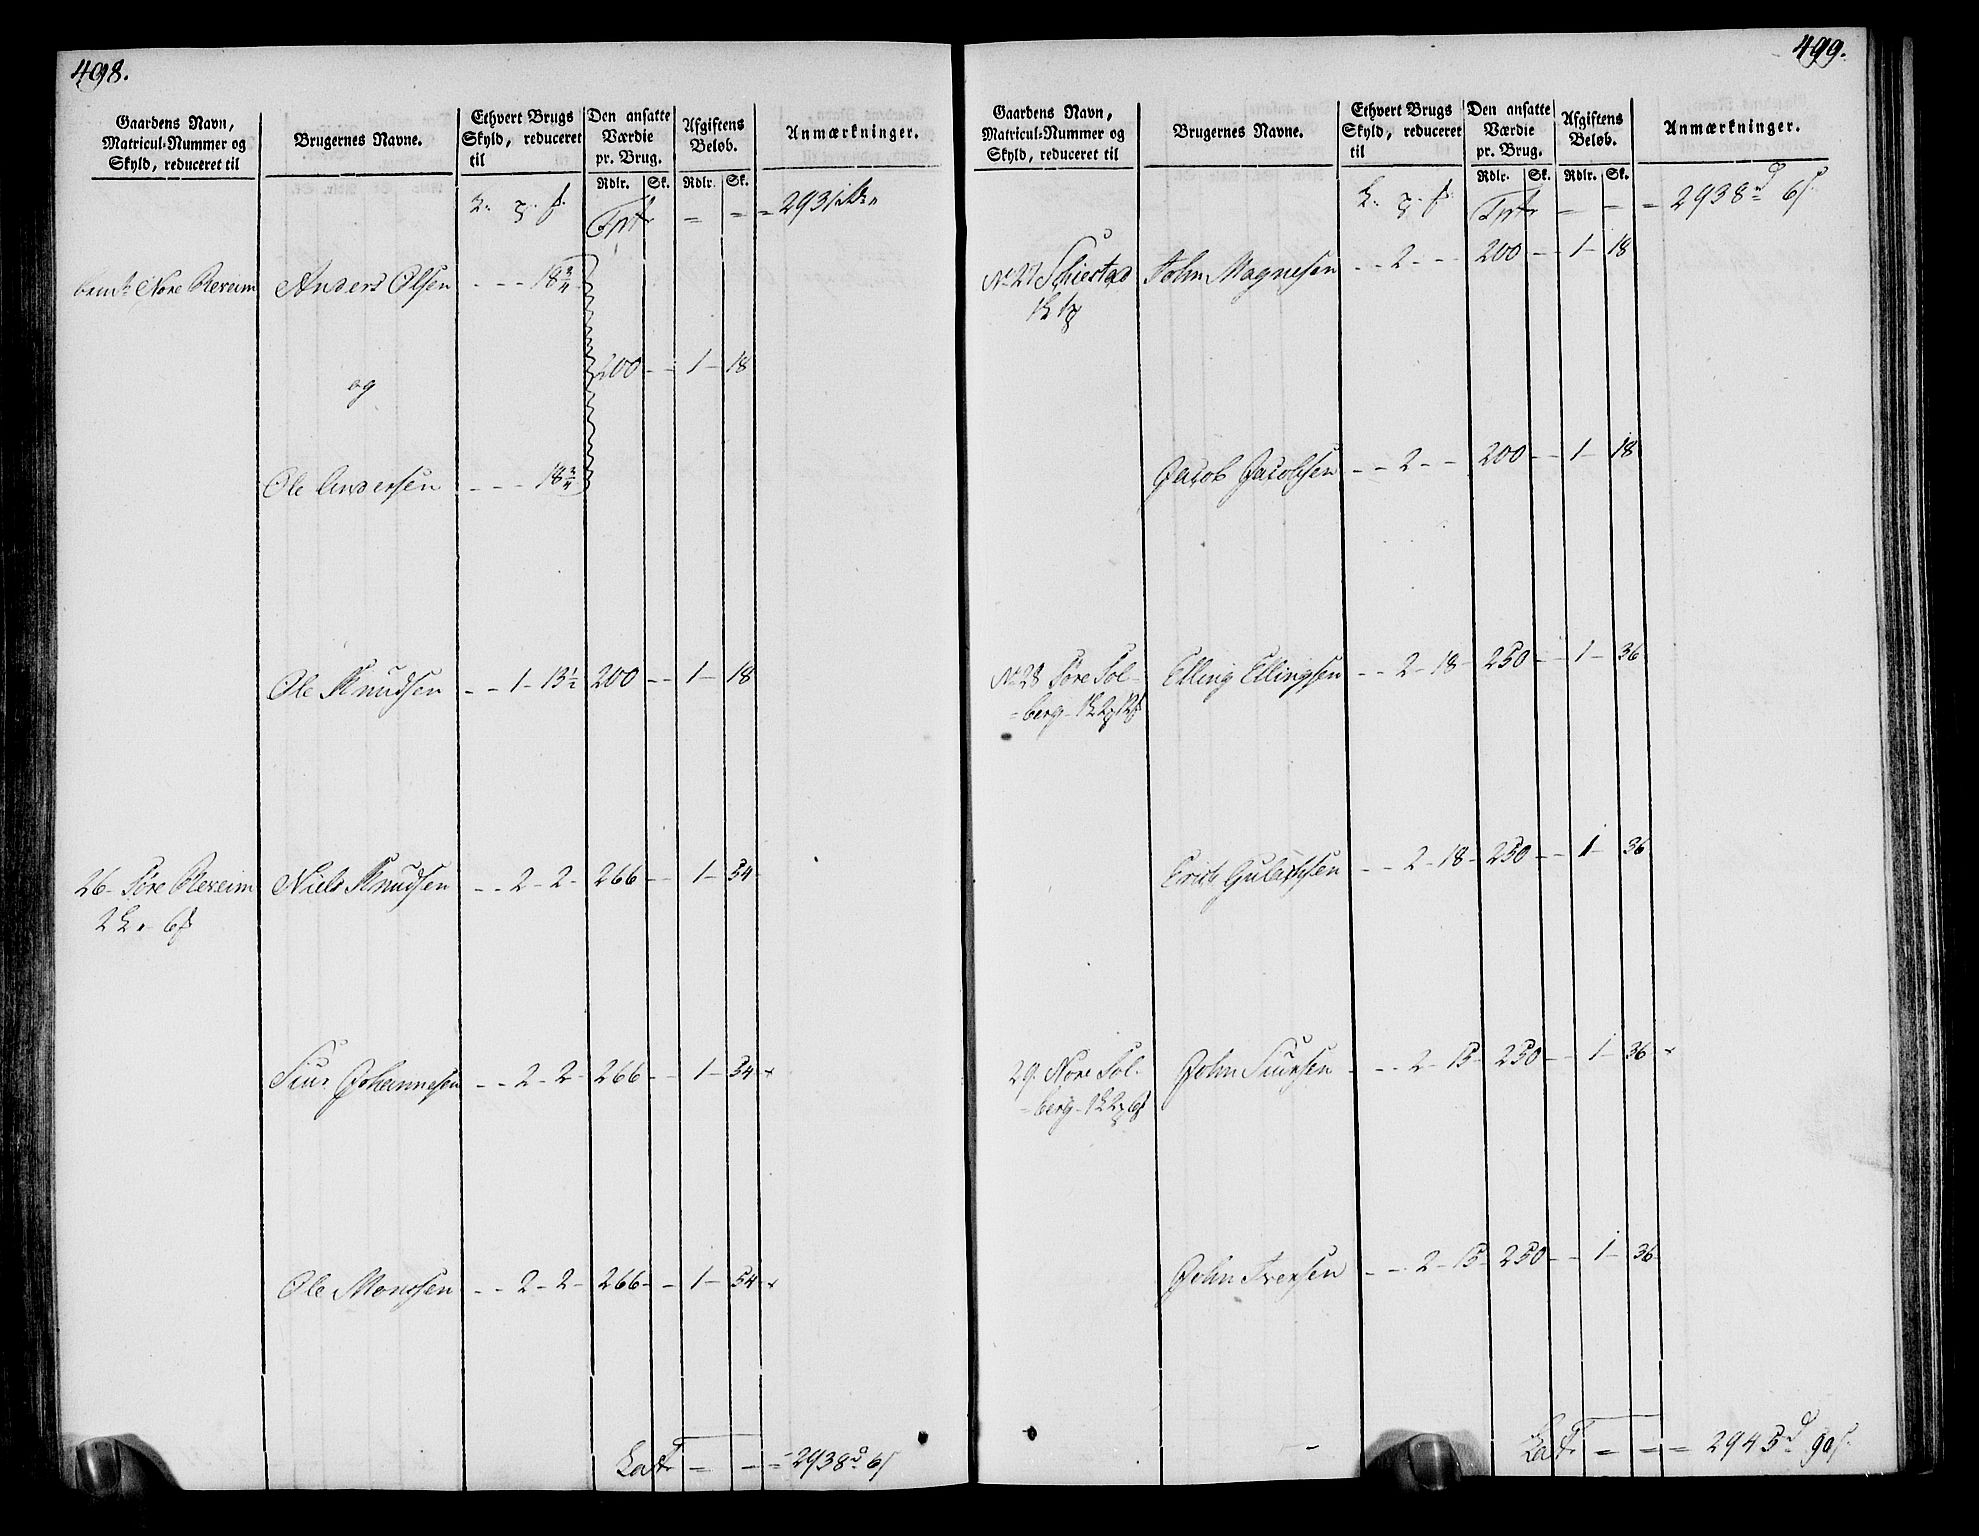 498.
Gaardens Navn, Matricul-Nummer og Skyld, reduceret til
Brugernes Navne.
Ethvert Brugs Skyld, reduceret til
Den ansatte Værdie pr. Brug.
Afgiftens Beløb.
Anmærkninger.
Rdlr. Sk. Rdlr. Sk.
Nore Reveim Anders Olsen - - - 18 3/4
og 200 - - 1 - 18
Ole Andersen - - - 18 3/4
Ole Knudsen - - 1 - 13 1/2 200 - - 1 - 18
26 - Søre Reveim Niels Knudsen - - 2 - 2 - 266 - - 1 - 54
Siur Johannesen - - 2 - 2 - 266 - - 1 - 54
Ole Monssen - - 2 - 2 - 266 - - 1 - 54
Lat = = = 2938 d 6 s
499.
Gaardens Navn, Matricul-Nummer og Skyld, reduceret til
Brugernes Navne.
Ethvert Brugs Skyld, reduceret til
Den ansatte Værdie pr. Brug.
Afgiftens Beløb.
Anmærkninger.
Rdlr. Sk. Rdlr. Sk.
= = = 2938 d 6 s
No 27 Schiestad John Magnesen - - 2 - - 200 - - 1 - 18
Jacob Jacobsen - - 2 - - 200 - - 1 - 18
No 28 Søre Sol= Elling Ellingsen - - 2 - 18 - 250 - - 1 - 36
=berg
Erich - - 2 - 18 - 250 - - 1 - 36
29. Nore Sol= John Siursen - - 2 - 15 - 250 - - 1 - 36
=berg
John Iversen - - 2 - 15 - 250 - - 1 - 36
Lat = = = 2945 d 90 s.